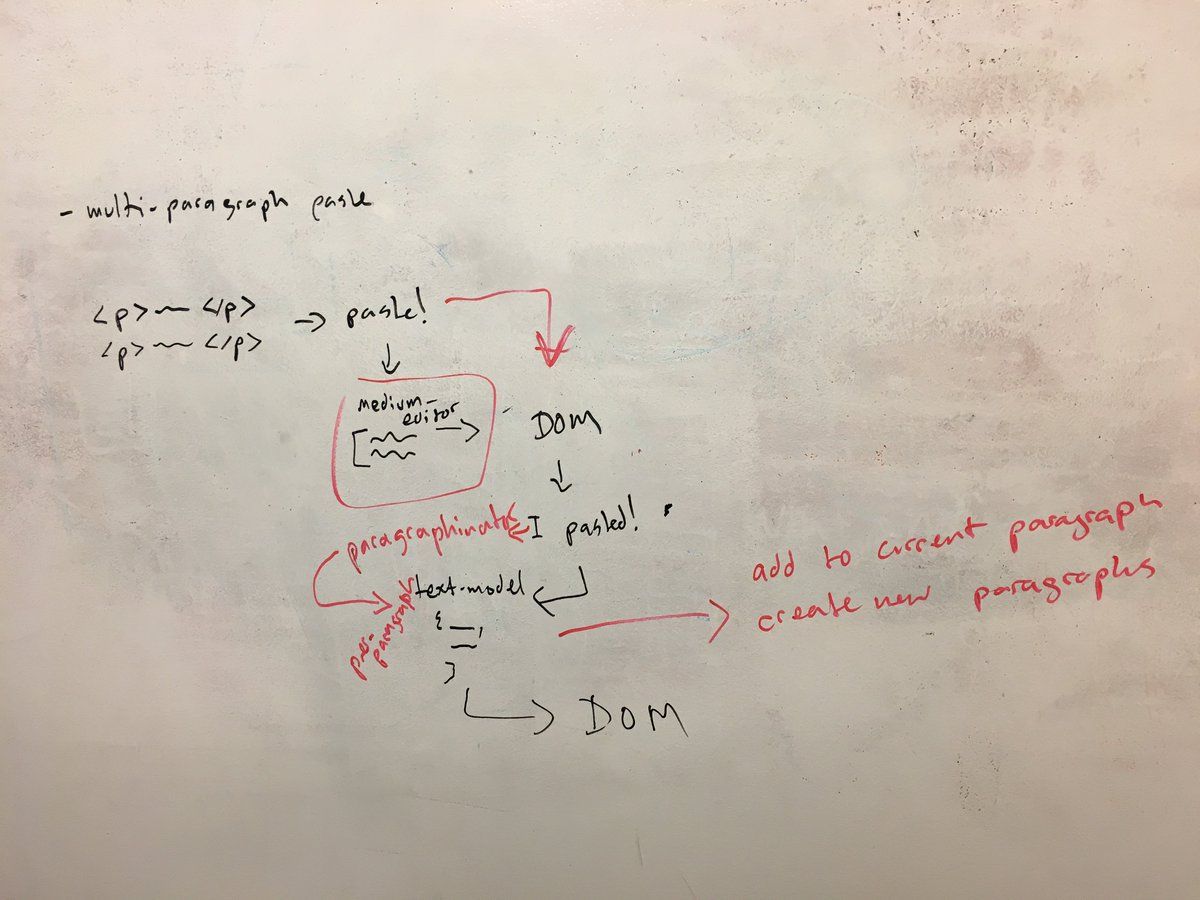 - multi-paragraph paste
<p>~~ </p> → paste!
<p>~~ </p>
medium-
editor
DOM
I pasted!
paragraphinate
text-model
per-
paragraph
{ —,
}
add to current paragraph
create new paragraphs
DOM